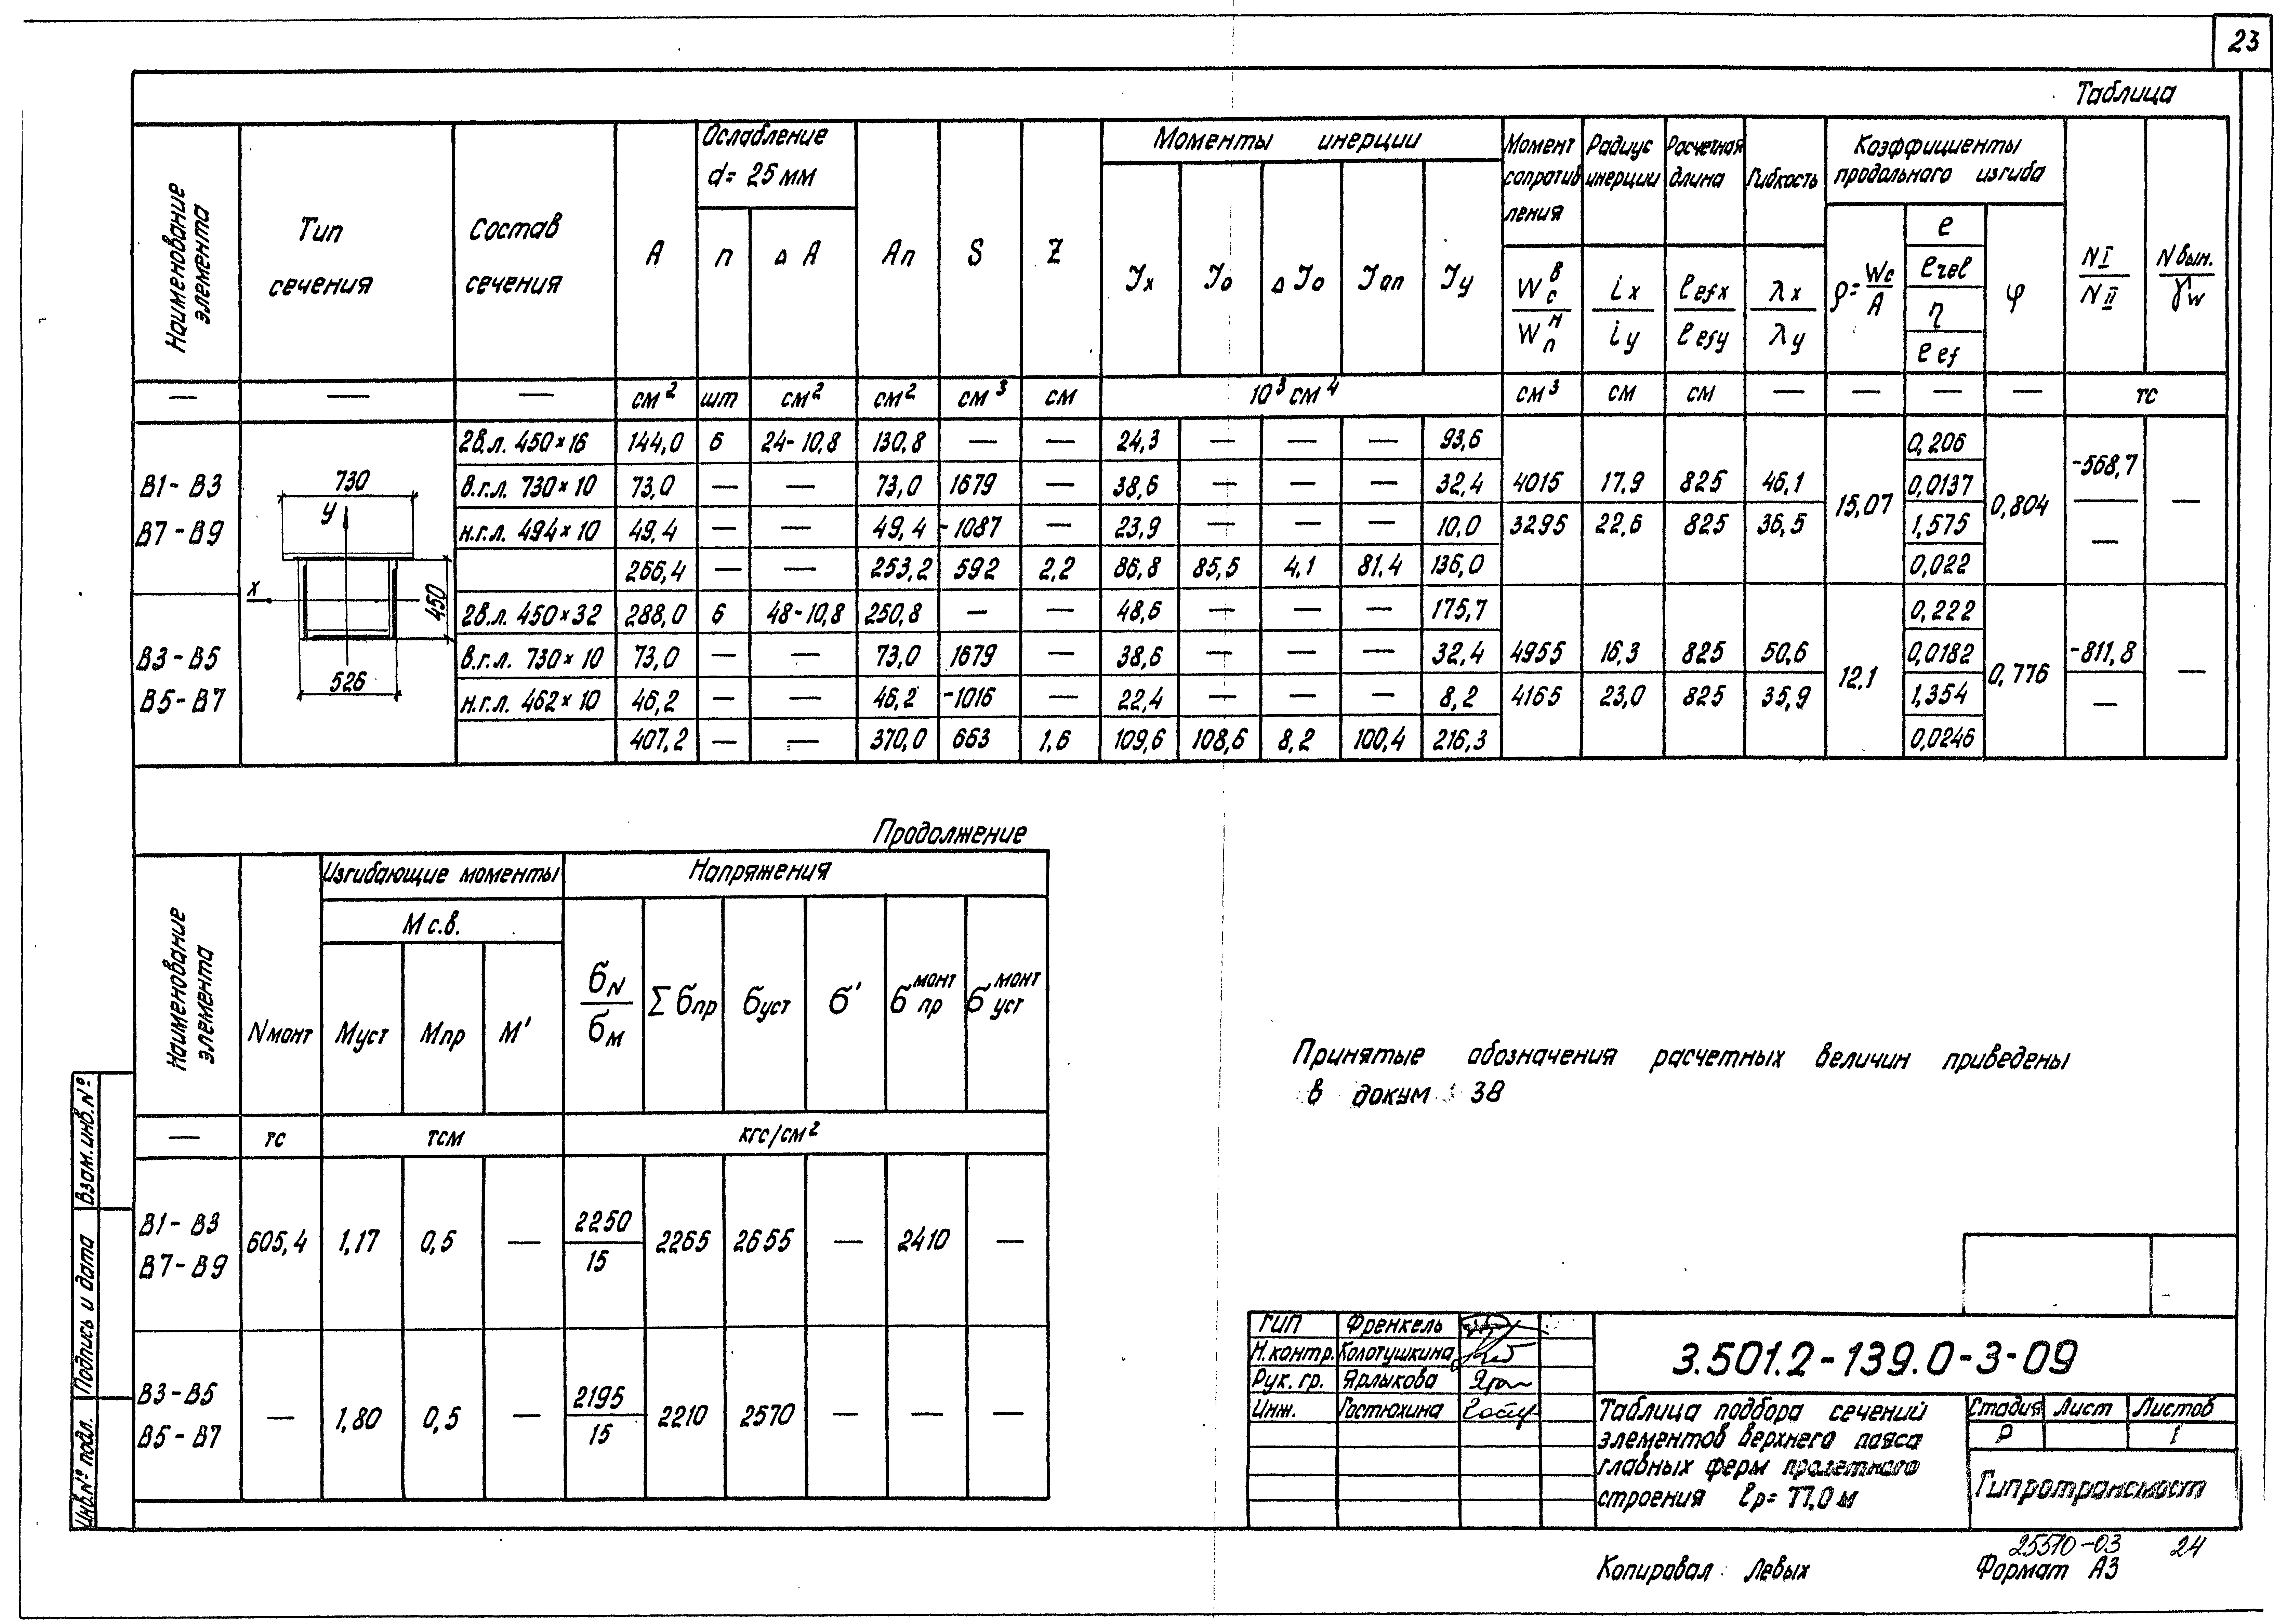 23
Таблица
Наименование элемента
Тип сечения
Состав сечения
A
Ослабление d= 25 мм
n
Δ A
Aп
S
Z
Моменты инерции
Jx
Jo
Δ Jo
Jоп
Jy
Момент сопротив ления
Wсᵇ
Wпᴴ
Радиус инерции
ix
iy
Расчетная длина
ℓefx
ℓefy
Гибкость
λx
λy
Коэффициенты продольного изгиба
ρ= Wc/A
e
erel
η
eef
φ
NI
NII
Nвын.
γw
— — — см² шт см² см² см³ см 10³ см⁴ см³ см см — — — — тс
2в.л. 450×16 144,0 6 24-10,8 130,8 — — 24,3 — — — 93,6 0,206
В1-В3 730 в.г.л. 730×10 73,0 — — 73,0 1679 — 38,6 — — — 32,4 4015 17,9 825 46,1 15,07 0,0137 0,804 -568,7 —
В7-В9 y н.г.л. 494×10 49,4 — — 49,4 -1087 — 23,9 — — — 10,0 3295 22,6 825 36,5 1,575 —
266,4 — — 253,2 592 2,2 86,8 85,5 4,1 81,4 136,0 0,022
x 450 2в.л. 450×32 288,0 6 48-10,8 250,8 — — 48,6 — — — 175,7 0,222
В3-В5 в.г.л. 730×10 73,0 — — 73,0 1679 — 38,6 — — — 32,4 4955 16,3 825 50,6 12,1 0,0182 0,776 -811,8 —
В5-В7 526 н.г.л. 462×10 46,2 — — 46,2 -1016 — 22,4 — — — 8,2 4165 23,0 825 35,9 1,354 —
407,2 — — 370,0 663 1,6 109,6 108,6 8,2 100,4 216,3 0,0246
Продолжение
Наименование элемента
Nмонт
Изгибающие моменты
Мс.в.
Муст
Мпр
М'
Напряжения
σN
σM
Σσпр
σуст
σ'
σ монт пр
σ монт уст
— тс тсм кгс/см²
В1-В3
В7-В9
605,4 1,17 0,5 — 2250 2265 2655 — 2410 —
15
В3-В5
В5-В7
— 1,80 0,5 — 2195 2210 2570 — — —
15
Принятые обозначения расчетных величин приведены
в докум 38
Взам.инв.№
Подпись и дата
Инв.№ подл.
ГИП Френкель
Н.контр. Колотушкина
Рук. гр. Ярлыкова
Инж. Гостюхина
3.501.2-139.0-3-09
Таблица подбора сечений
элементов верхнего пояса
главных ферм пролетного
строения ℓр= 77,0 м
Стадия Лист Листов
Р 1
Гипротрансмост
25570-03 24
Копировал: Левых Формат А3